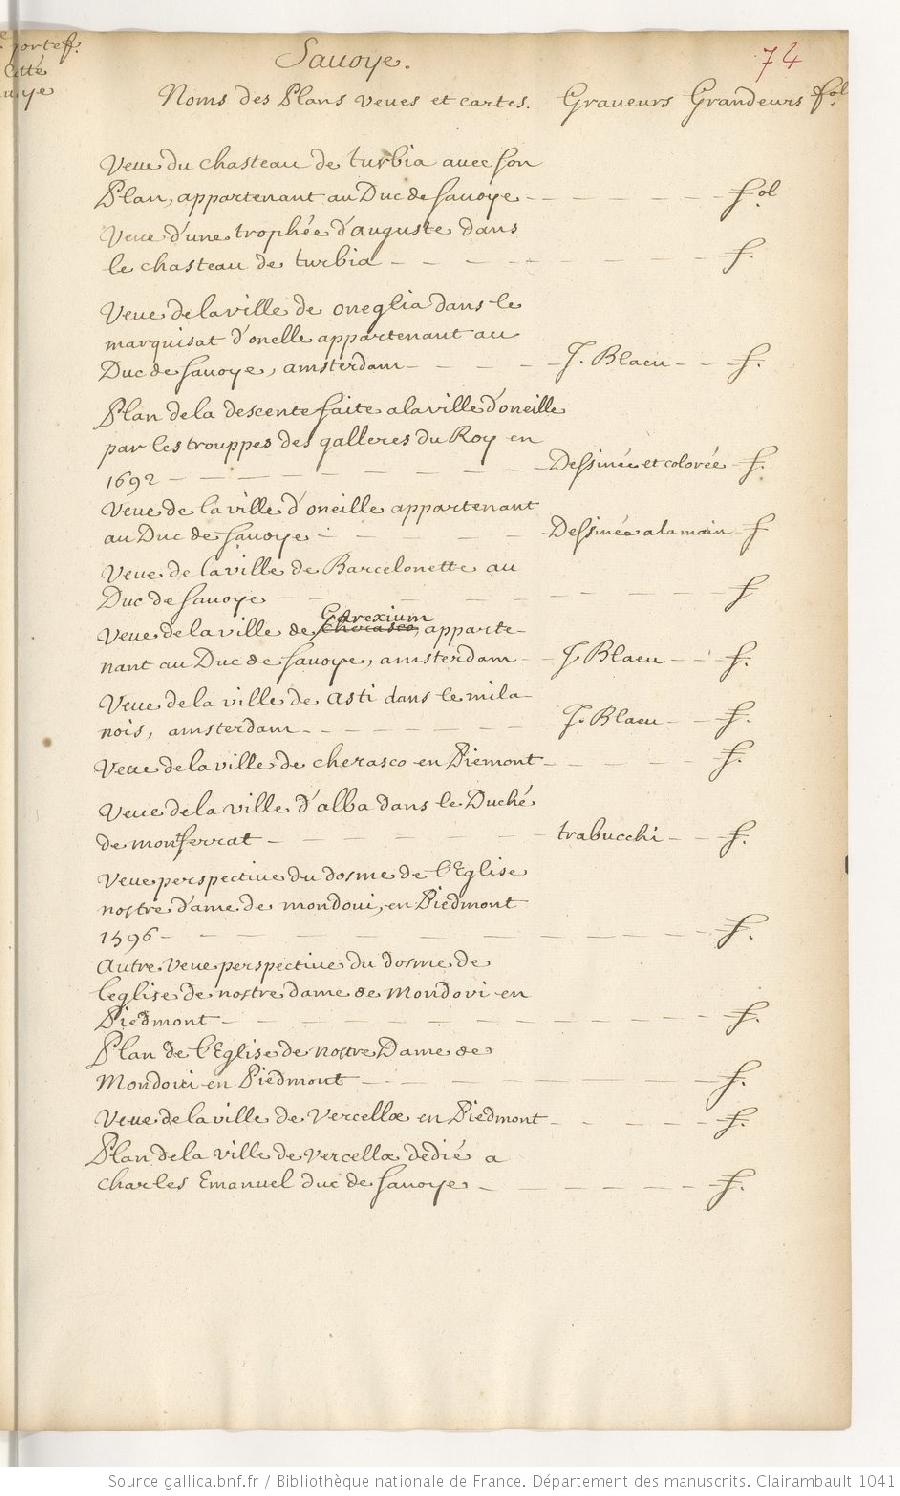 portef.
Sauoye.
74
Noms des Plans veues et cartes. Graueurs Grandeurs fol.
Veue du chasteau de turbia auec son
Plan, appartenant au Duc de sauoye - - - - - - fol
Veue d'une trophée d'auguste dans
le chasteau de turbia - - - - - - - f.
Veue de la ville de oneglia dans le
marquisat d'onelle appartenant au
Duc de sauoye, amsterdam - - - - - J. Blaeu - - f.
Plan de la descente faite a la ville d'oneille
par les trouppes des galleres du Roy en
1692 - - - - - - - Dessinée et colorée - f.
Veue de la ville d'oneille appartenant
au Duc de sauoye - - - - Dessinéa a la main - f
Veue de la ville de Barcelonette au
Duc de sauoye - - - - - - f
Garexium
Veue de la ville de cherasco, apparte-
nant au Duc de sauoye, amsterdam - - J Blaeu - - f.
Veue de la ville de asti dans le mila-
nois, amsterdam - - - - - - J. Blaeu - - f.
Veue de la ville de cherasco en Piemont - - - - f.
Veue de la ville d'alba dans le Duché
de montferrat - - - - - - trabucchi - - f.
Veue perspectiue du dosme de l'Eglise
nostre d'ame de mondoui, en Piedmont
1596 - - - - - - - - - - f.
Autre veue perspectiue du dosme de
l'eglise de nostre dame de Mondovi en
Piedmont - - - - - - - - - f.
Plan de l'Eglise de nostre Dame de
Mondoui en Piedmont - - - - - f.
Veue de la ville de vercellæ en Piedmont - - - - f.
Plan de la ville de vercellæ dedié a
charles Emanuel duc de sauoye - - - - - f.
Source gallica.bnf.fr / Bibliothèque nationale de France. Département des manuscrits. Clairambault 1041